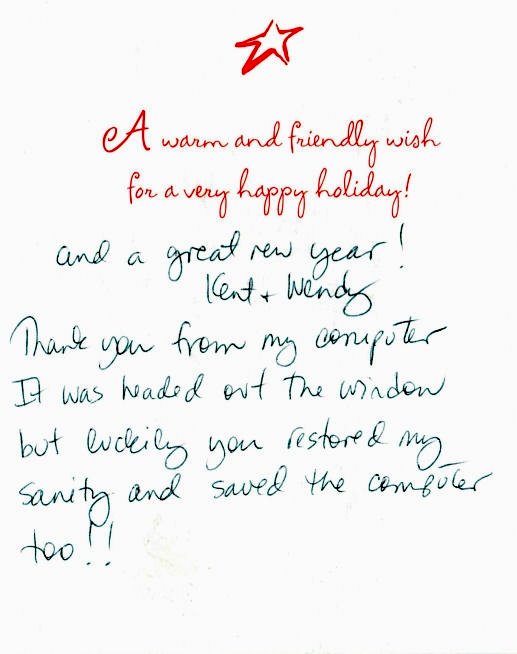 A warm and friendly wish
for a very happy holiday!
and a great new year!
Kent + Wendy
Thank you from my computer
It was headed out the window
but luckily you restored my
sanity and saved the computer
too!!